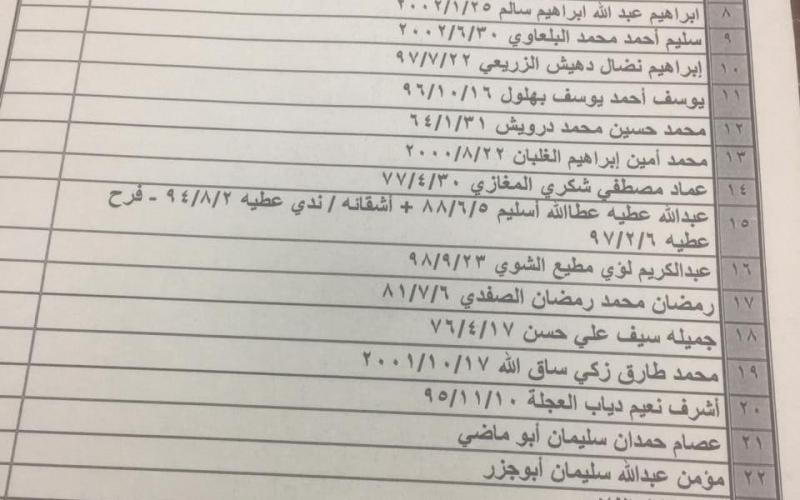 ٨ ابراهيم عبد الله ابراهيم سالم ٢٠٠٢/١/٢٥
٩ سليم أحمد محمد البلعاوي ٢٠٠٢/٦/٣٠
١٠ إبراهيم نضال دهيش الزريعي ٩٧/٧/٢٢
١١ يوسف أحمد يوسف بهلول ٩٦/١٠/١٦
١٢ محمد حسين محمد درويش ٦٤/١/٣١
١٣ محمد أمين إبراهيم الغلبان ٢٠٠٠/٨/٢٢
١٤ عماد مصطفي شكري المغازي ٧٧/٤/٣٠
١٥ عبدالله عطيه عطاالله أسليم ٨٨/٦/٥ + أشقائه / ندي عطيه ٩٤/٨/٢ - فرح
عطيه ٩٧/٢/٦
١٦ عبدالكريم لؤي مطيع الشوي ٩٨/٩/٢٣
١٧ رمضان محمد رمضان الصفدي ٨١/٧/٦
١٨ جميله سيف علي حسن ٧٦/٤/١٧
١٩ محمد طارق زكي ساق الله ٢٠٠١/١٠/١٧
٢٠ أشرف نعيم دياب العجلة ٩٥/١١/١٠
٢١ عصام حمدان سليمان أبو ماضي
٢٢ مؤمن عبدالله سليمان أبوجزر